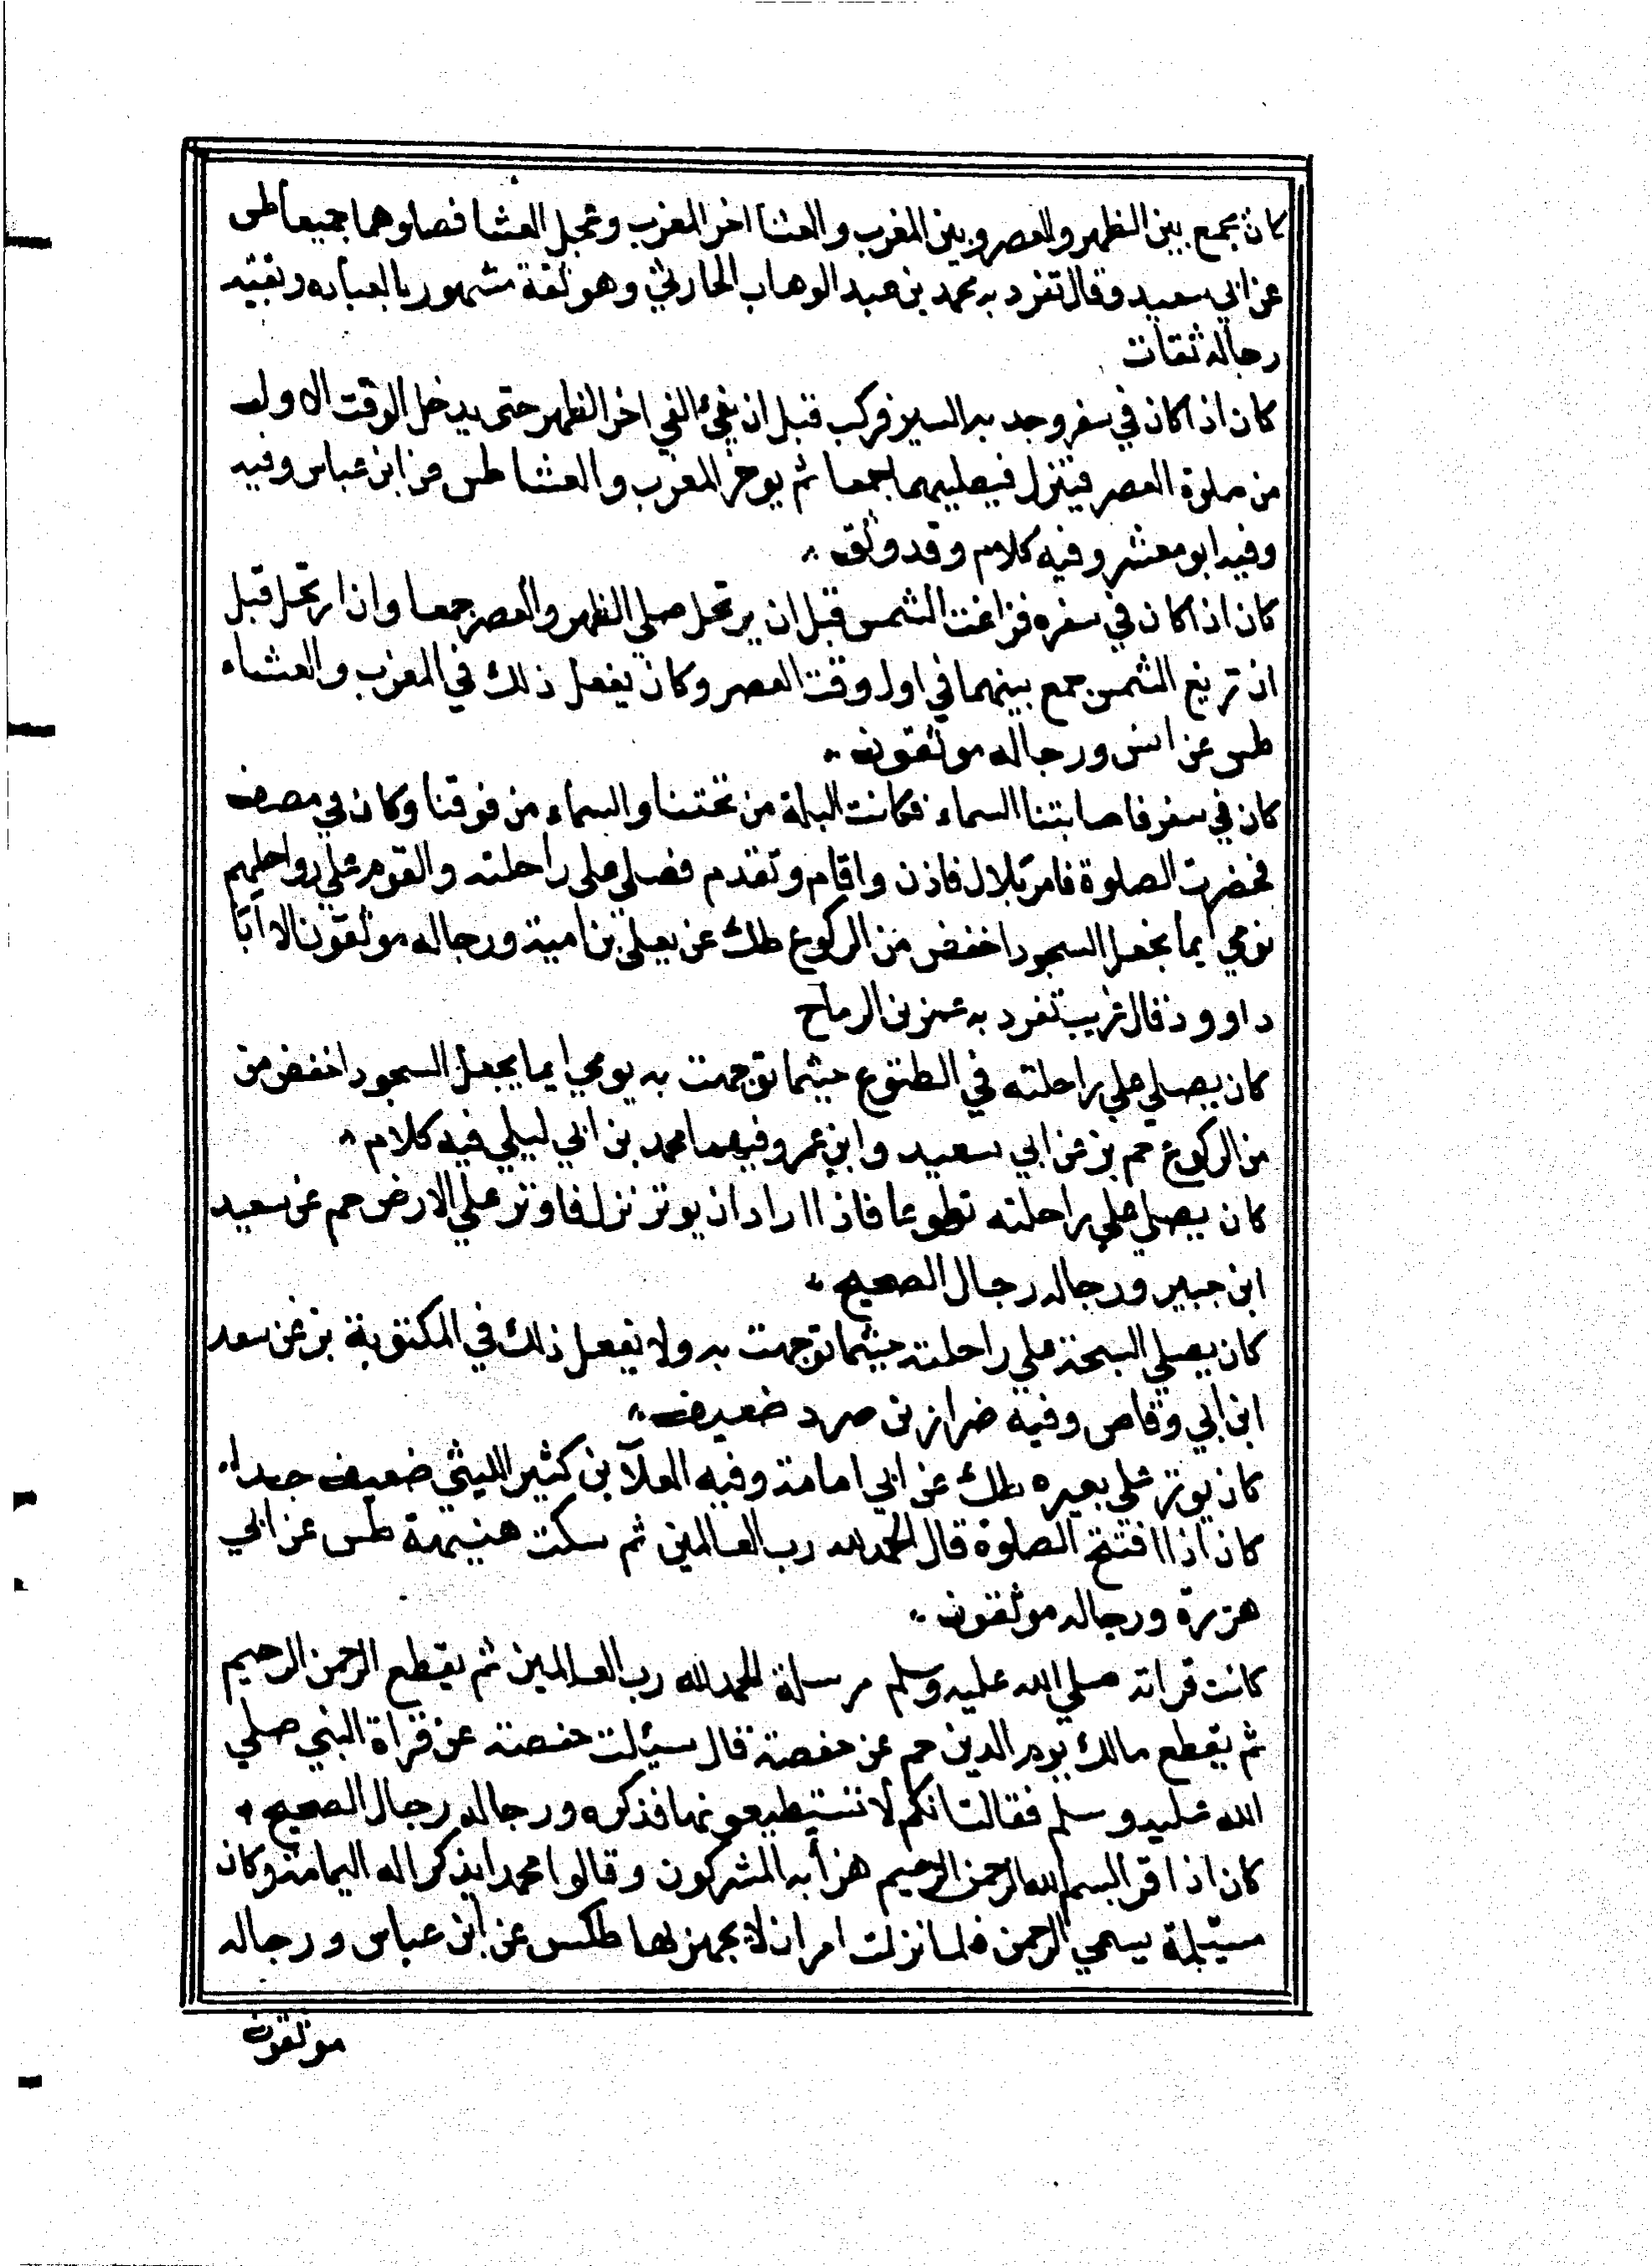 كان يجمع بين الظهر والعصر وبين المغرب والعشا اخر المغرب وعجل العشا فصلوهما جميعا طس
عن ابي سعيد وقال تفرد به محمد بن عبد الوهاب الحارثي وهو ثقة مشهور بالعباده وبقيه
رجاله ثقات
كان اذا كان في سفر وجد به السير فركب قبل ان يفئ الفي اخر الظهر حتى يدخل الوقت الاول
من صلوة العصر فينزل فيصليهما جمعا ثم يوخر المغرب والعشا طس عن ابن عباس وفيه
وفيه ابو معشر وفيه كلام وقد وثق
كان اذا كان في سفره فزاغت الشمس قبل ان يرتحل صلي الظهر والعصر جمعا وان ارتحل قبل
ان تريغ الشمس جمع بينهما في اول وقت العصر وكان يفعل ذلك في المغرب والعشاء
طس عن انس ورجاله موثقون
كان في سفر فاصابتنا السماء فكانت البلة من تحتنا والسماء من فوقنا وكان في مصيف
فحضرت الصلوة فامر بلال فاذن واقام وتقدم فصلي علي راحلته والقوم علي رواحلهم
نومي ايما يجعل السجود اخفض من الركوع طك عن يعلي بن امية ورجاله موثقون الا ابا
داوود قال غريب تفرد به عمر بن الرماح
كان يصلي علي راحلته في التطوع حيثما توجهت به يومي ايما يجعل السجود اخفض من
من الركوع حم بز عن ابي سعيد وابن عمر وفيهما محمد بن ابي ليلي فيه كلام
كان يصلي علي راحلته تطوعا فاذا اراد ان يوتر نزل فاوتر علي الارض حم عن سعيد
ابن جبير ورجاله رجال الصحيح
كان يصلي السبحة علي راحلته حيثما توجهت به ولا يفعل ذلك في المكتوبة بز عن سعد
ابن ابي وقاص وفيه ضرار بن صرد ضعيف
كان يوتر علي بعيره طك عن ابي امامة وفيه العلآ بن كثير الليثي ضعيف جدا
كان اذا افتتح الصلوة قال الحمد لله رب العالمين ثم سكت هنيهة طس عن ابي
هريرة ورجاله موثقون
كانت قراته صلي الله عليه وسلم مرسلة الحمد لله رب العالمين ثم يقطع الرحمن الرحيم
ثم يقطع مالك يوم الدين حم عن حفصة قال سيلت حفصة عن قراة النبي صلي
الله عليه وسلم فقالت انكم لا تستطيعونها فذكره ورجاله رجال الصحيح
كان اذا قرا بسم الله الرحمن الرحيم هزأ به المشركون وقالوا محمد ايذكر اله اليمامة وكان
مسيلمة يسمي الرحمن فلما نزلت امر ان لا يجهر بها طكس عن ابن عباس ورجاله
موثقون